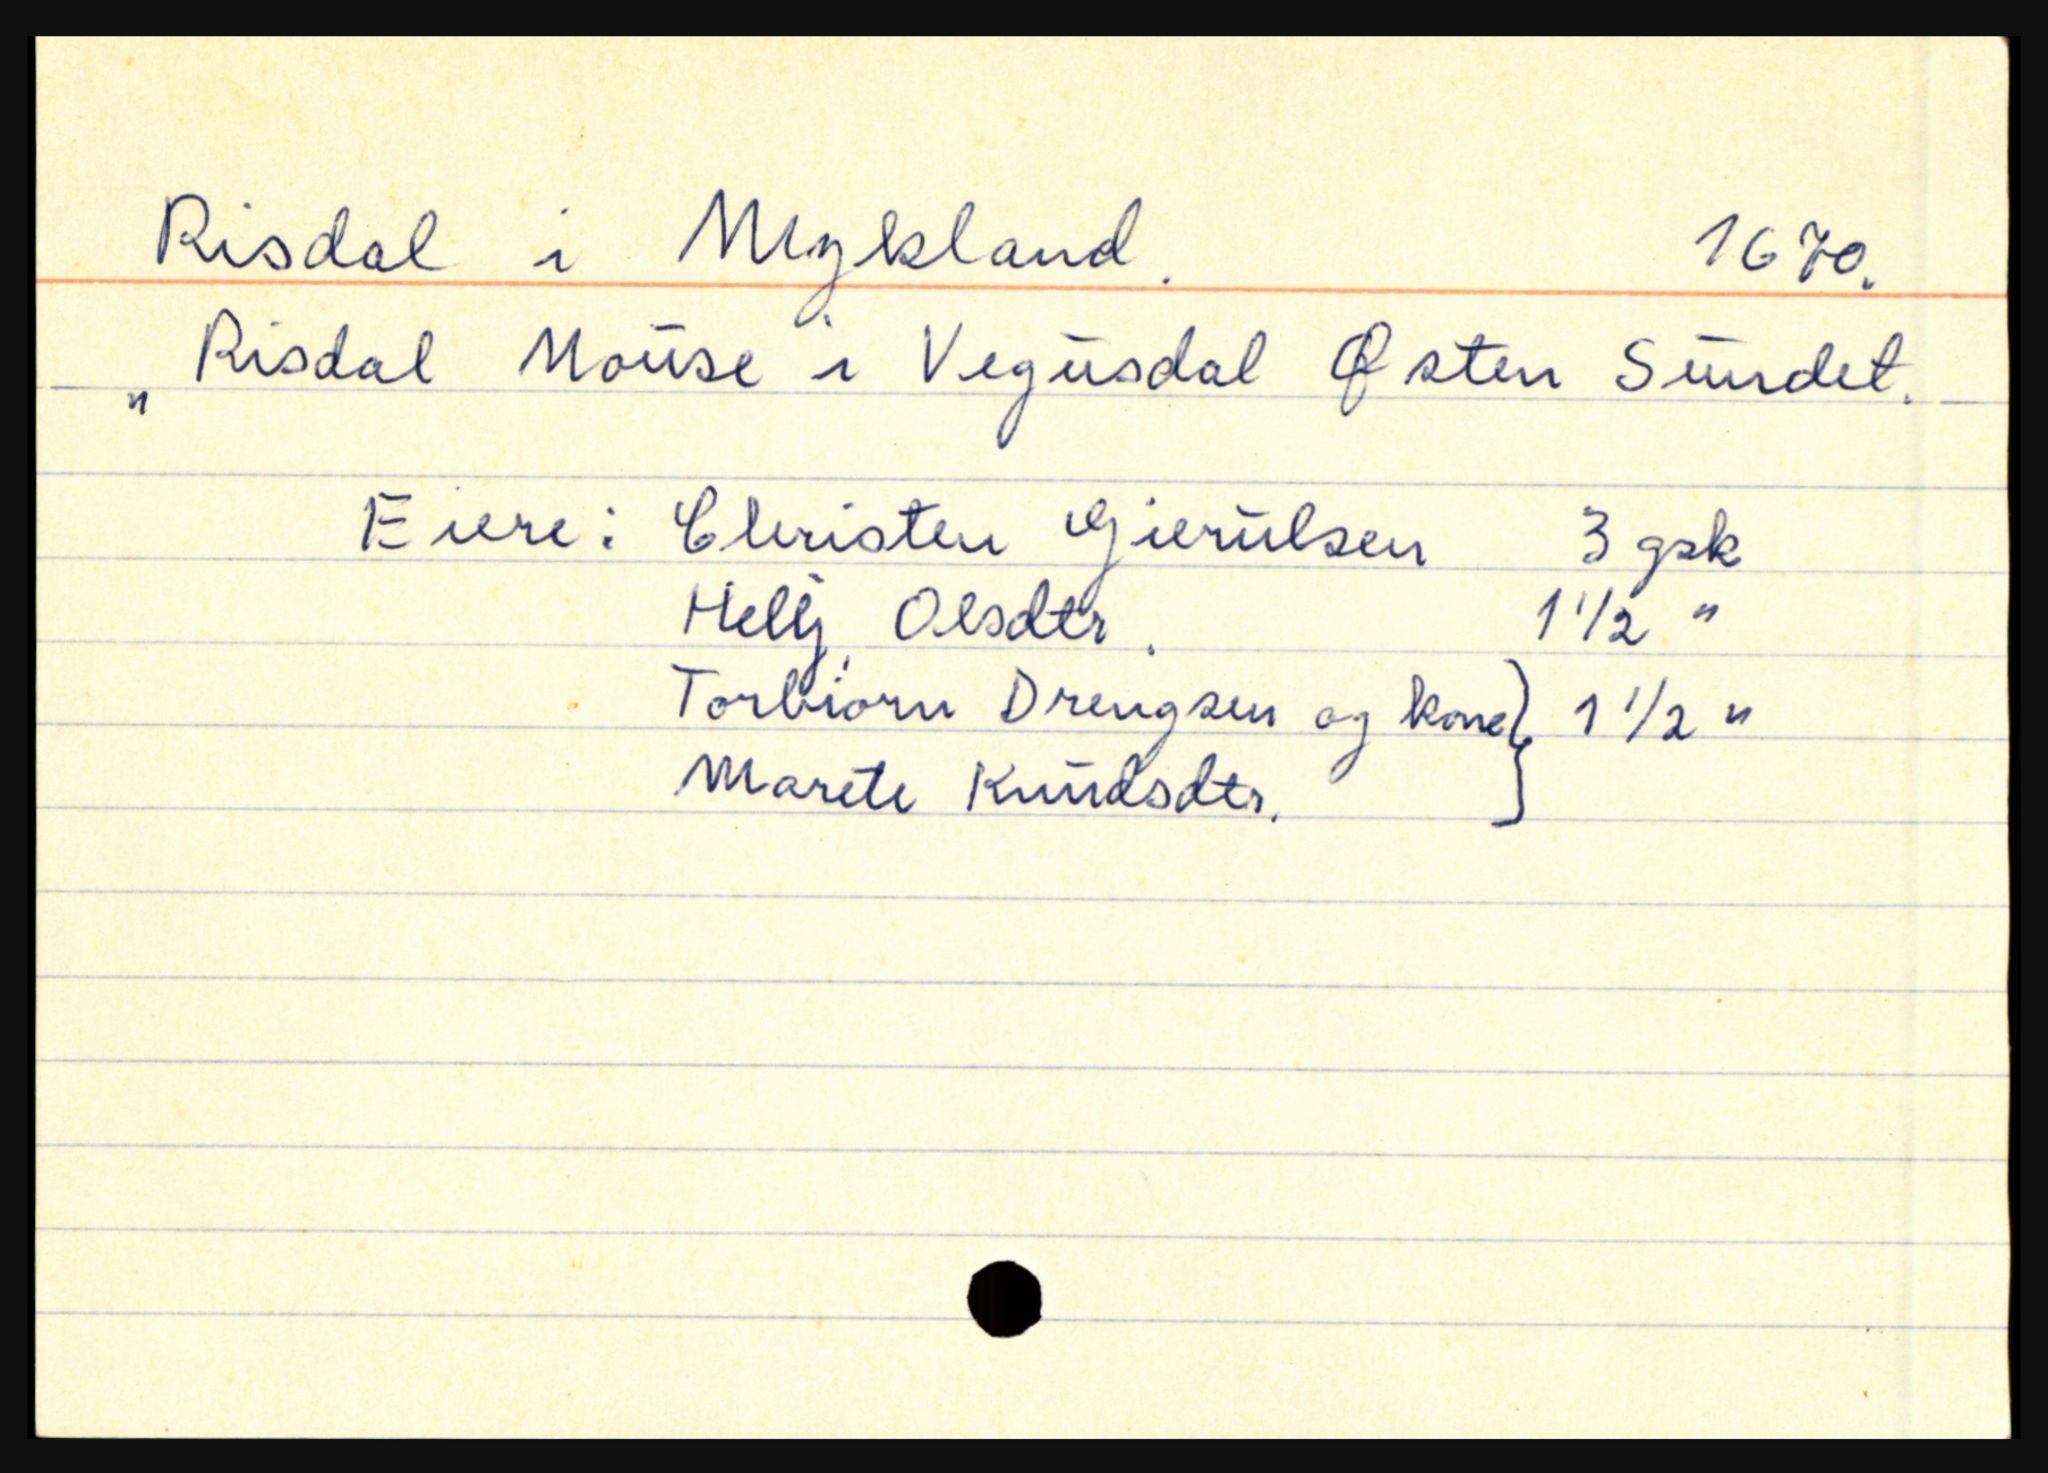 Risdal i Mykland. 1670.
„ Risdal Mouse i Vegusdal Østen Sundet.
Eiere: Christen Gierulsen 3 gsk
Hellj Olsdtr. 1 1/2 "
Torbiorn Drengsen og kone } 1 1/2 "
Marete Knudsdtr.